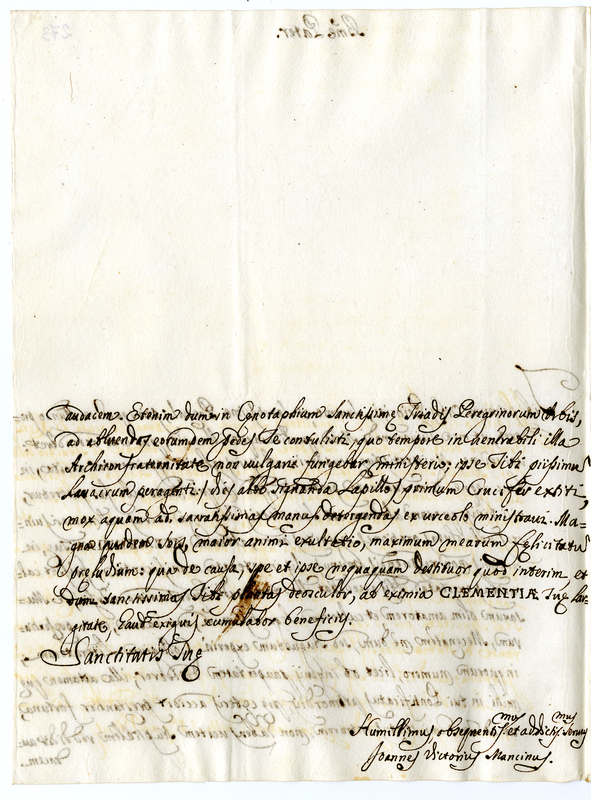 audacem. Etenim dum in Cenotaphium Sanctissimę Triadis Peregrinorum Orbis,
ad abluendos eorumdem pedes Te contulisti, quo tempore in venerabili illa
Archiconfraternitate non vulgari fungebar ministerio; ipse Tibi piissimũ
lavacrum peragenti: / dies albo signanda lapillo / primum Crucifer extiti,
mox aquam ad sacratissimas manus detergendas ex urceolo ministravi. Ma-
gna quidem sors, maior animi exultatio, maximum mearum felicitatũ
preludium: qua de causa, spe et ipse nequaquam destituor quod interim, et
dum sanctissimas Tibi plantas deosculor, ab eximia CLEMENTIÆ Tuę lar-
gitate, haud exiguis cumulabor beneficiis.
Sanctitatis Tuę
Humillimus, obsequentis.mus et addictis.mus servus
Joannes Victorius Mancinus.